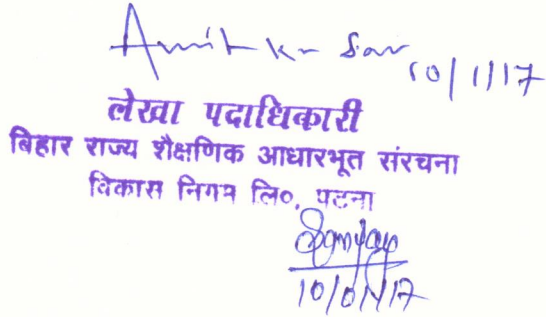 Amit kr Sar 10/1/17
लेखा पदाधिकारी
बिहार राज्य शैक्षणिक आधारभूत संरचना
विकास निगम लि०, पटना
10/01/17